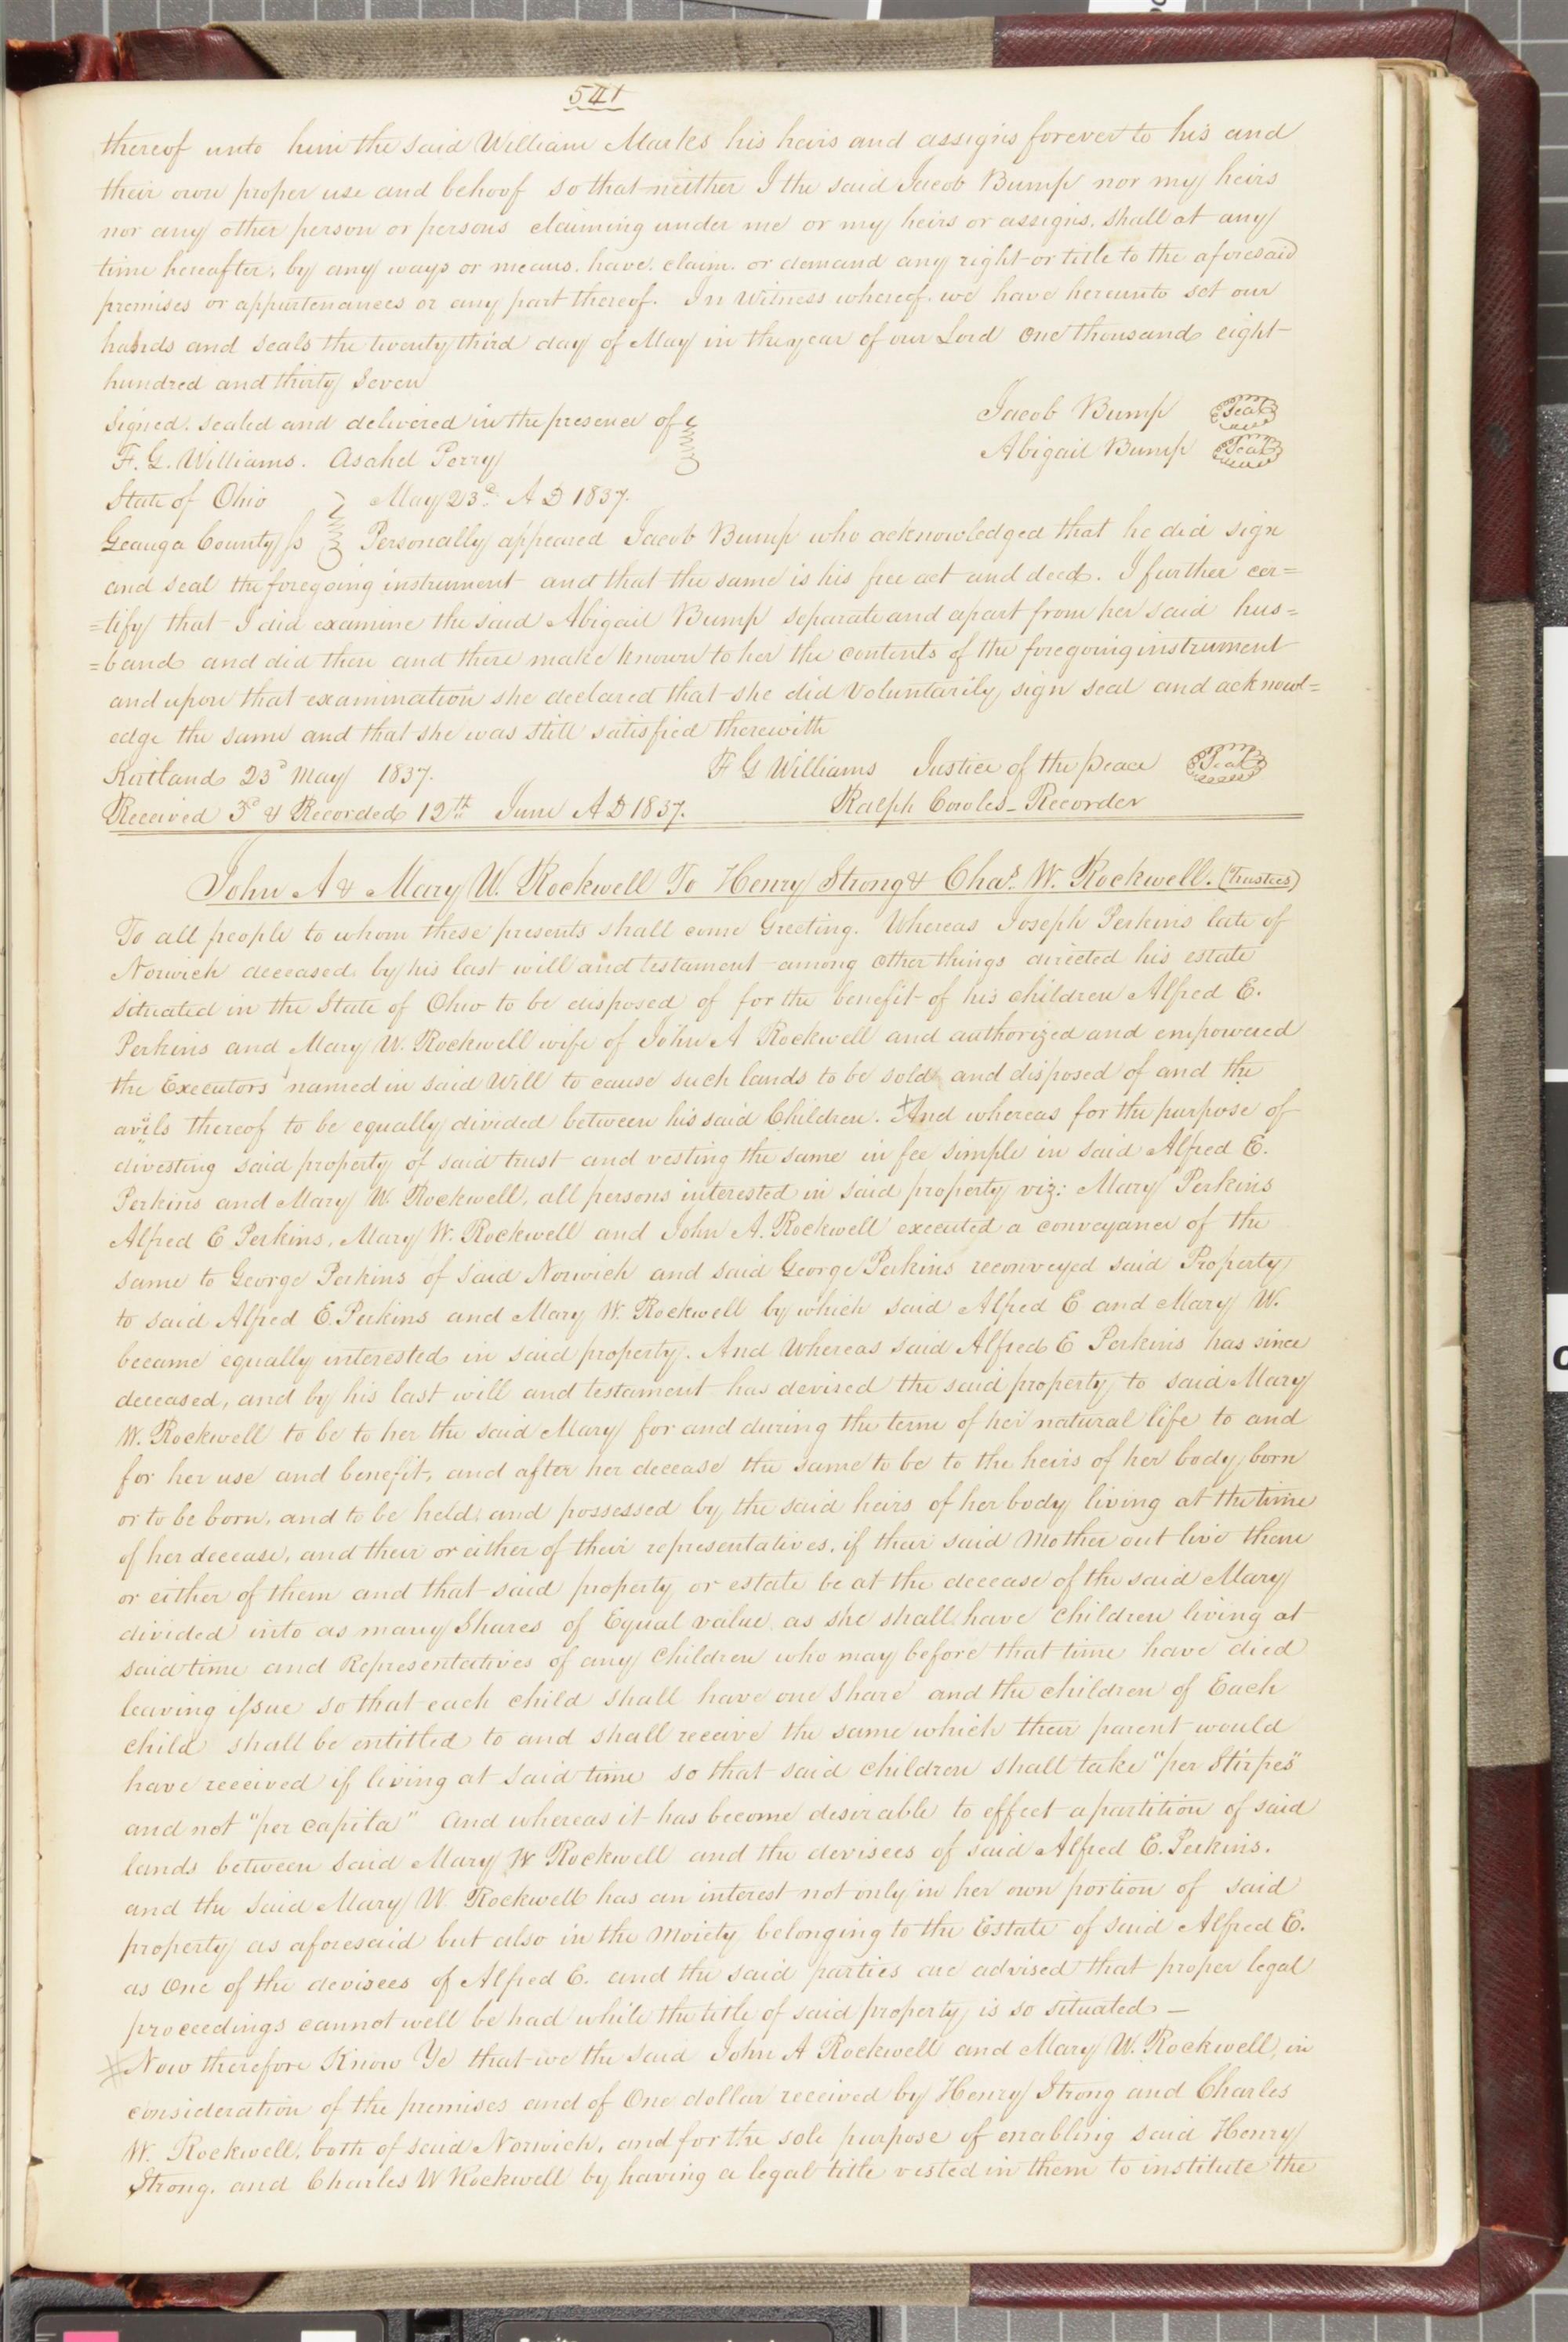 541
thereof unto him the said William Marks his heirs and assigns forever to his and
their own proper use and behoof so that neither I the said Jacob Bump nor my heirs
nor any other person or persons claiming under me or my heirs or assigns, shall at any
time hereafter, by any ways or means, have, claim, or demand any right or title to the aforesaid
premises or appurtenances or any part thereof. In Witness whereof, we have hereunto set our
hands and seals the twenty third day of May in the year of our Lord One thousand eight
hundred and thirty Seven
Signed, sealed and delivered in the presence of
Jacob Bump Seal
F. G. Williams. Asahel Perry
Abigail Bump Seal
State of Ohio May 23d A D 1837.
Geauga County ss Personally appeared Jacob Bump who acknowledged that he did sign
and seal the foregoing instrument and that the same is his free act and deed. I further cer=
=tify that I did examine the said Abigail Bump separate and apart from her said hus=
=band and did then and there make known to her the contents of the foregoing instrument
and upon that examination she declared that she did Voluntarily sign seal and acknowl=
edge the same and that she was still satisfied therewith
Kirtland 23d May 1837. F G Williams Justice of the peace Seal
Received 3d & Recorded 12th June A D 1837. Ralph Cowles - Recorder
John A & Mary W. Rockwell To Henry Strong & Chas. W. Rockwell. (Trustees)
To all people to whom these presents shall come Greeting. Whereas Joseph Perkins late of
Norwich deceased by his last will and testament among other things directed his estate
situated in the State of Ohio to be disposed of for the benefit of his children Alfred E.
Perkins and Mary W. Rockwell wife of John A Rockwell and authorized and empowered
the Executors named in said Will to cause such lands to be sold and disposed of and the
avils thereof to be equally divided between his said Children. And whereas for the purpose of
divesting said property of said trust and vesting the same in fee simple in said Alfred E.
Perkins and Mary W. Rockwell, all persons interested in said property viz: Mary Perkins
Alfred E Perkins, Mary W. Rockwell and John A. Rockwell executed a conveyance of the
same to George Perkins of said Norwich and said George Perkins reconveyed said Property
to said Alfred E. Perkins and Mary W. Rockwell by which said Alfred E and Mary W.
became equally interested in said property. And Whereas said Alfred E Perkins has since
deceased, and by his last will and testament has devised the said property to said Mary
W. Rockwell to be to her the said Mary for and during the term of her natural life to and
for her use and benefit, and after her decease the same to be to the heirs of her body, born
or to be born, and to be held and possessed by the said heirs of her body living at the time
of her decease, and their or either of their representatives, if their said Mother out live them
or either of them and that said property or estate be at the decease of the said Mary
divided into as many Shares of Equal value as she shall have children living at
said time and Representatives of any Children who may before that time have died
leaving issue so that each child shall have one Share and the children of Each
child shall be entitled to and shall receive the same which their parent would
have received if living at said time so that said children shall take "per Stirpes"
and not "per capita" And whereas it has become desirable to effect a partition of said
lands between said Mary W Rockwell and the devisees of said Alfred E. Perkins.
and the said Mary W. Rockwell has an interest not only in her own portion of said
property as aforesaid but also in the Moiety belonging to the Estate of said Alfred E.
as One of the devisees of Alfred E. and the said parties are advised that proper legal
proceedings cannot well be had while the title of said property is so situated -
Now therefore Know Ye that we the said John A Rockwell and Mary W. Rockwell, in
consideration of the premises and of One dollar received by Henry Strong and Charles
W. Rockwell, both of said Norwich, and for the sole purpose of enabling said Henry
Strong, and Charles W Rockwell by having a legal title vested in them to institute the